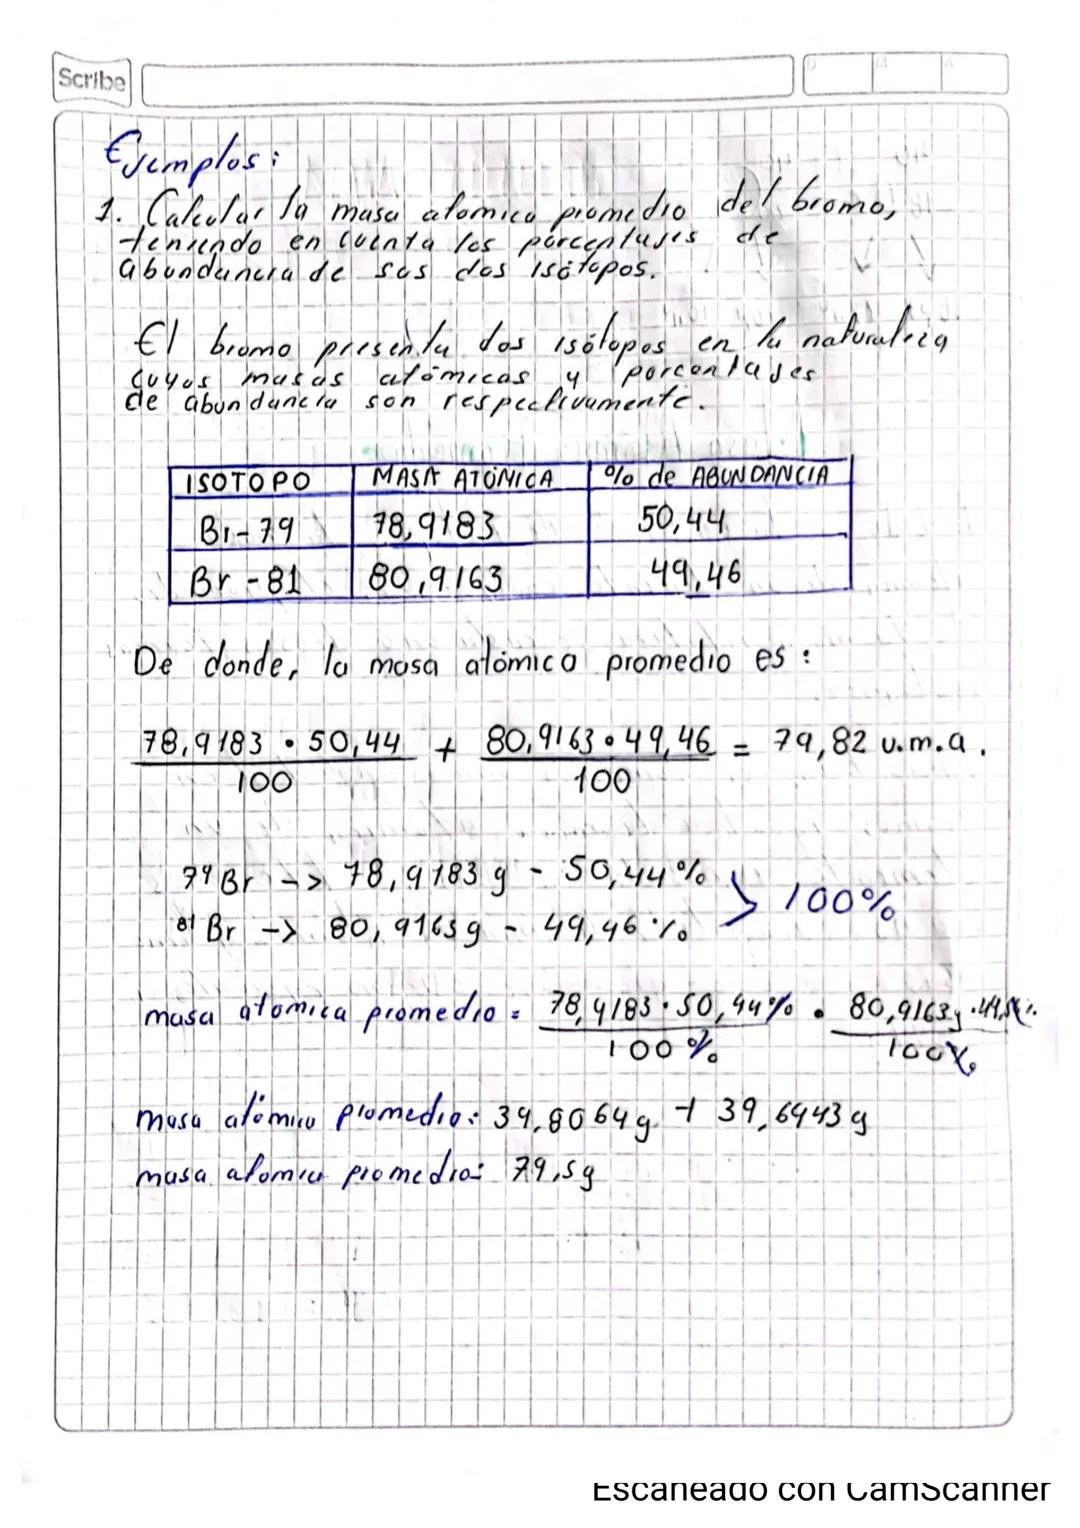 Scribe
D M A
Ejemplos:
1. Calcular la masa atomica promedio del bromo,
teniendo en cuenta los porcentajes de
abundancia de sus dos isótopos.
El bromo presenta dos isótopos en la naturaleza
cuyas masas atómicas y porcentajes
de abundancia son respectivamente.
ISOTOPO MASA ATOMICA % de ABUNDANCIA
Br-79 78,9183 50,44
Br-81 80,9163 49,46
De donde, la masa atómica promedio es:
78,9183 • 50,44 + 80,9163 • 49,46 = 79,82 u.m.a.
100 100
79 Br -> 78,9183 g - 50,44% > 100%
81 Br -> 80,9163g - 49,46 %
masa atomica promedio = 78,9183 · 50,44% • 80,9163g
100 % 100%
masa atómica promedio: 39,8064g + 39,6943 g
masa atomica promedio: 79,5g
Escaneado con CamScanner